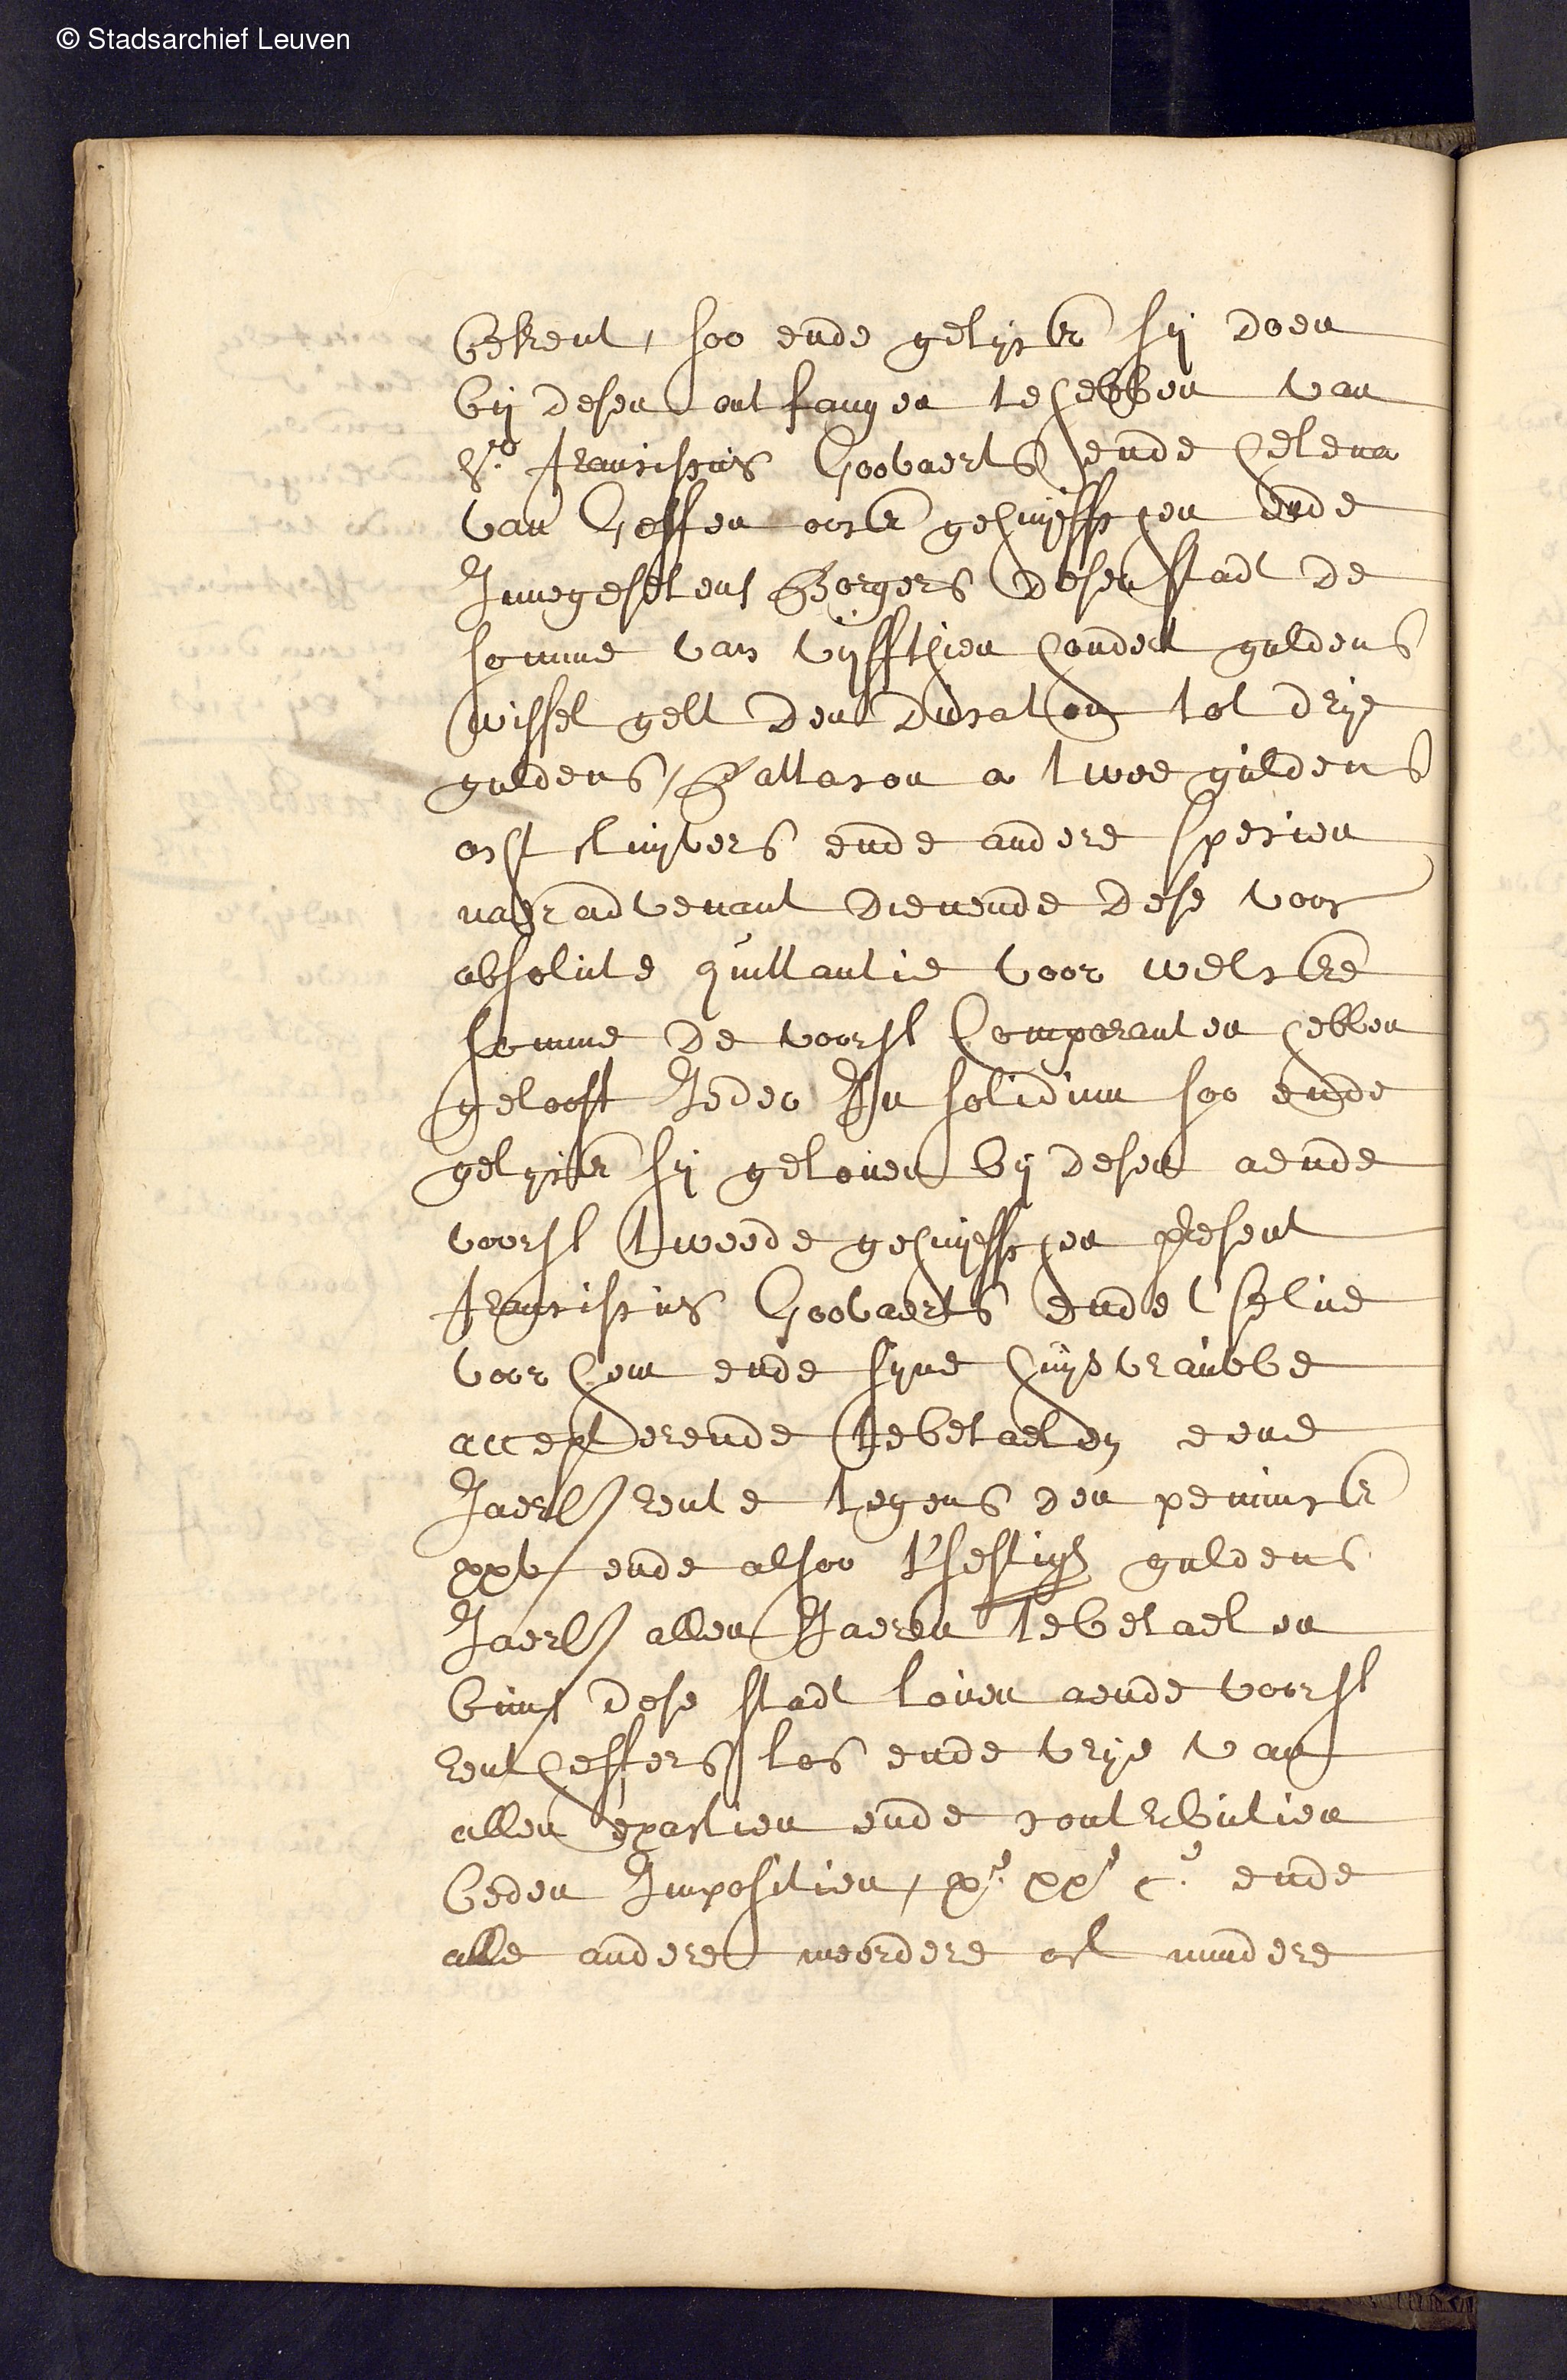 © Stadsarchief Leuven
bekent, soo ende gelijck sij doen
bij desen ontfangen te hebben van
Sr. Franciscus Goovaerts ende Helena
van Geffen oock gehuijsschen ende
Innegesetens Borgers deser stadt de
somme van vijffthien hondert guldens
wissel gelt den ducaton tot drije
guldens, Pattacon a twee guldens
acht stuijvers ende andere specien
naer advenant dienende dese voor
absolute quittantie voor welcke
somme de voorsl Comparanten hebben
gelooft Jeder In solidum soo ende
gelijck sij geloven bij desen aende
voorsl tweede gehuijsschen present
Franciscus Goovaerts ende t selve
voor hem ende sijne huijsvrauwe
accepterende te betaelen eene
Jaerl rente tegens den penninck
xxv ende alsoo t'sestigh guldens
Jaerl allen Jaeren te betaelen
binn dese stadt Loven aende voorsl
rentheffers los ende vrije van
allen exactien ende contributien
beden Impositien, xe. xxe ce. ende
alle andere meerdere oft mindere